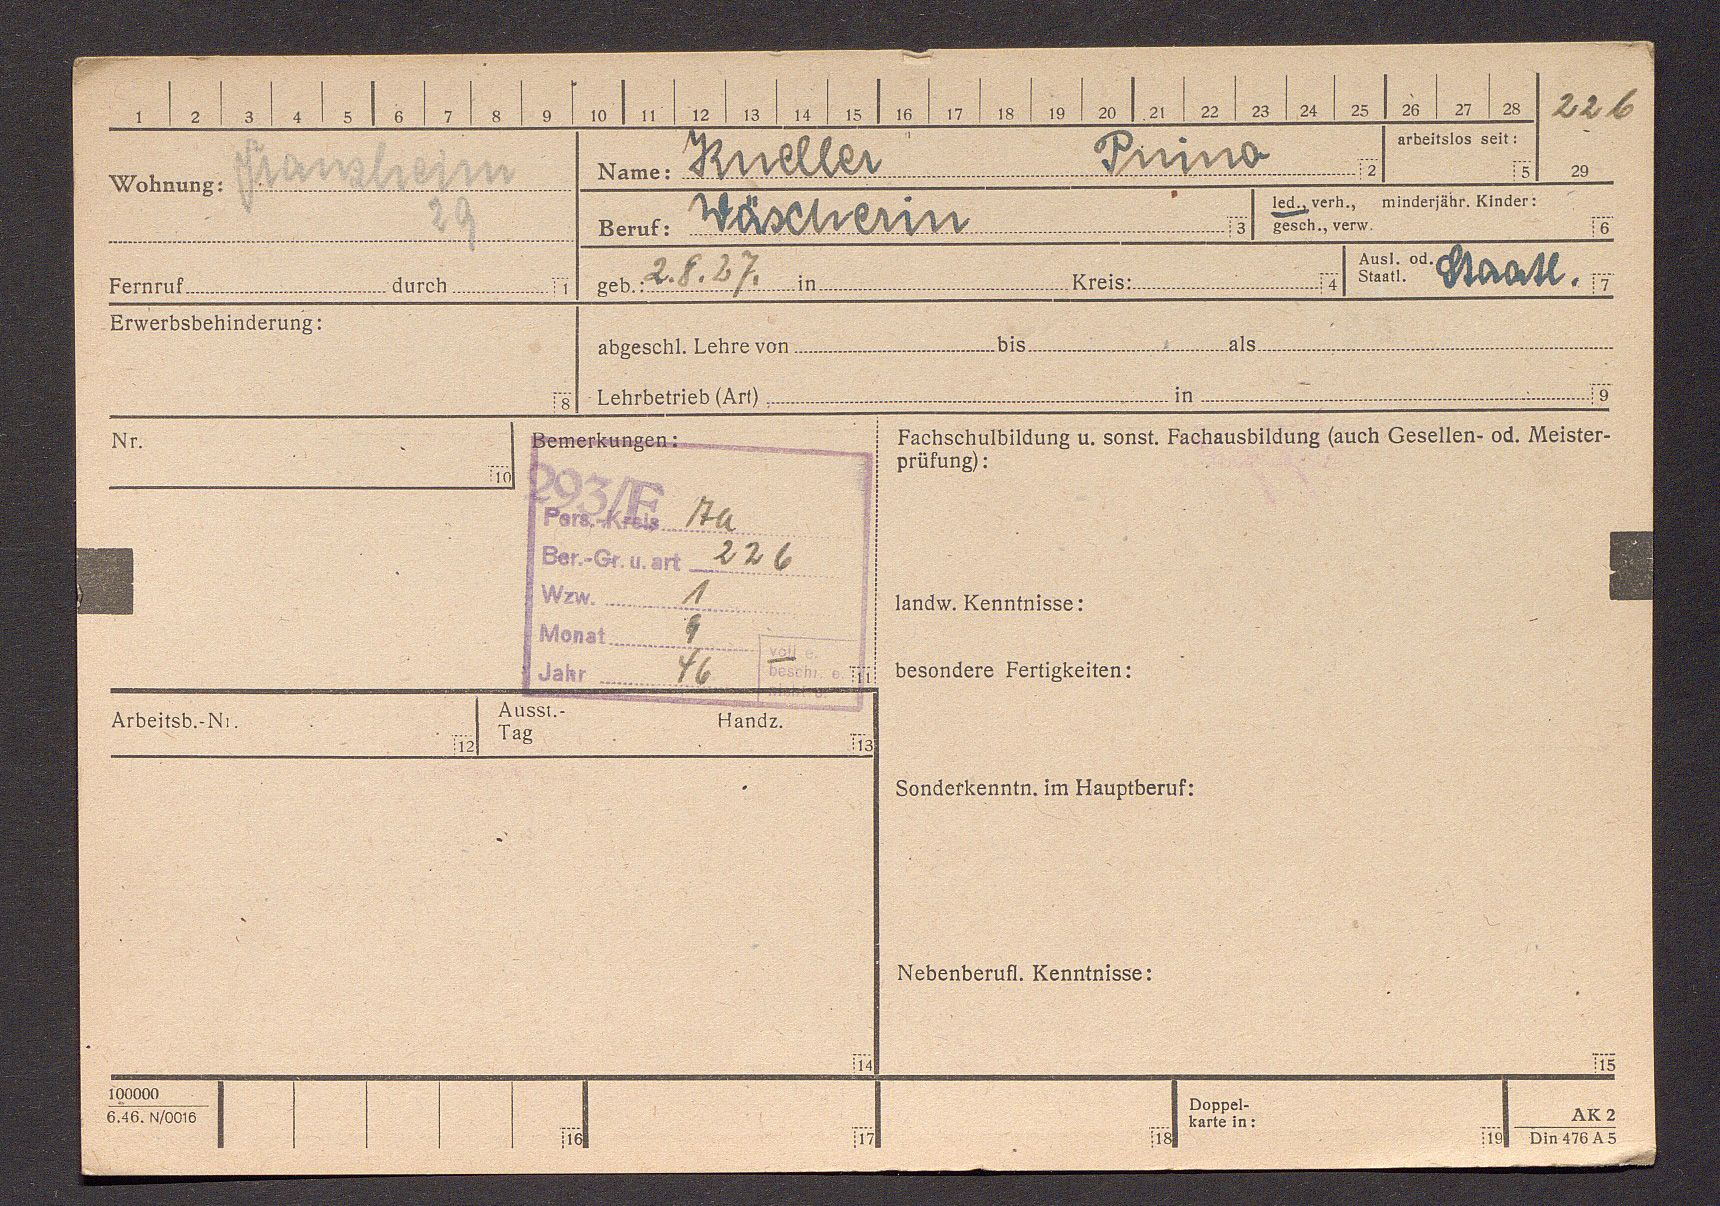 1 2 3 4 5 6 7 8 9 10 11 12 13 14 15 16 17 18 19 20 21 22 23 24 25 26 27 28 226
Wohnung: 29
Name: Kneller Pnina 2
arbeitslos seit: 5
29
Beruf: Wäscherin 3
led., verh., minderjähr. Kinder:
gesch., verw. 6
Fernruf durch 1
geb.: 2.8.27. in Kreis: 4
Ausl. od. Staatl.
Staatl. 7
Erwerbsbehinderung:
8
abgeschl. Lehre von bis als
Lehrbetrieb (Art) in 9
Nr.
10
Bemerkungen:
293/F
Pers.-Kreis
Ber.-Gr. u. art 226
Wzw. 1
Monat 9
Jahr 46
voll e.
beschr. e.
nicht e.
11
Fachschulbildung u. sonst. Fachausbildung (auch Gesellen- od. Meister-
prüfung):
landw. Kenntnisse:
besondere Fertigkeiten:
Arbeitsb.-Nr. 12
Ausst.-
Tag
Handz.
13
Sonderkenntn. im Hauptberuf:
Nebenberufl. Kenntnisse:
14
15
100000
6.46. N/0016
16 17 18
Doppel-
karte in: 19
AK 2
Din 476 A 5